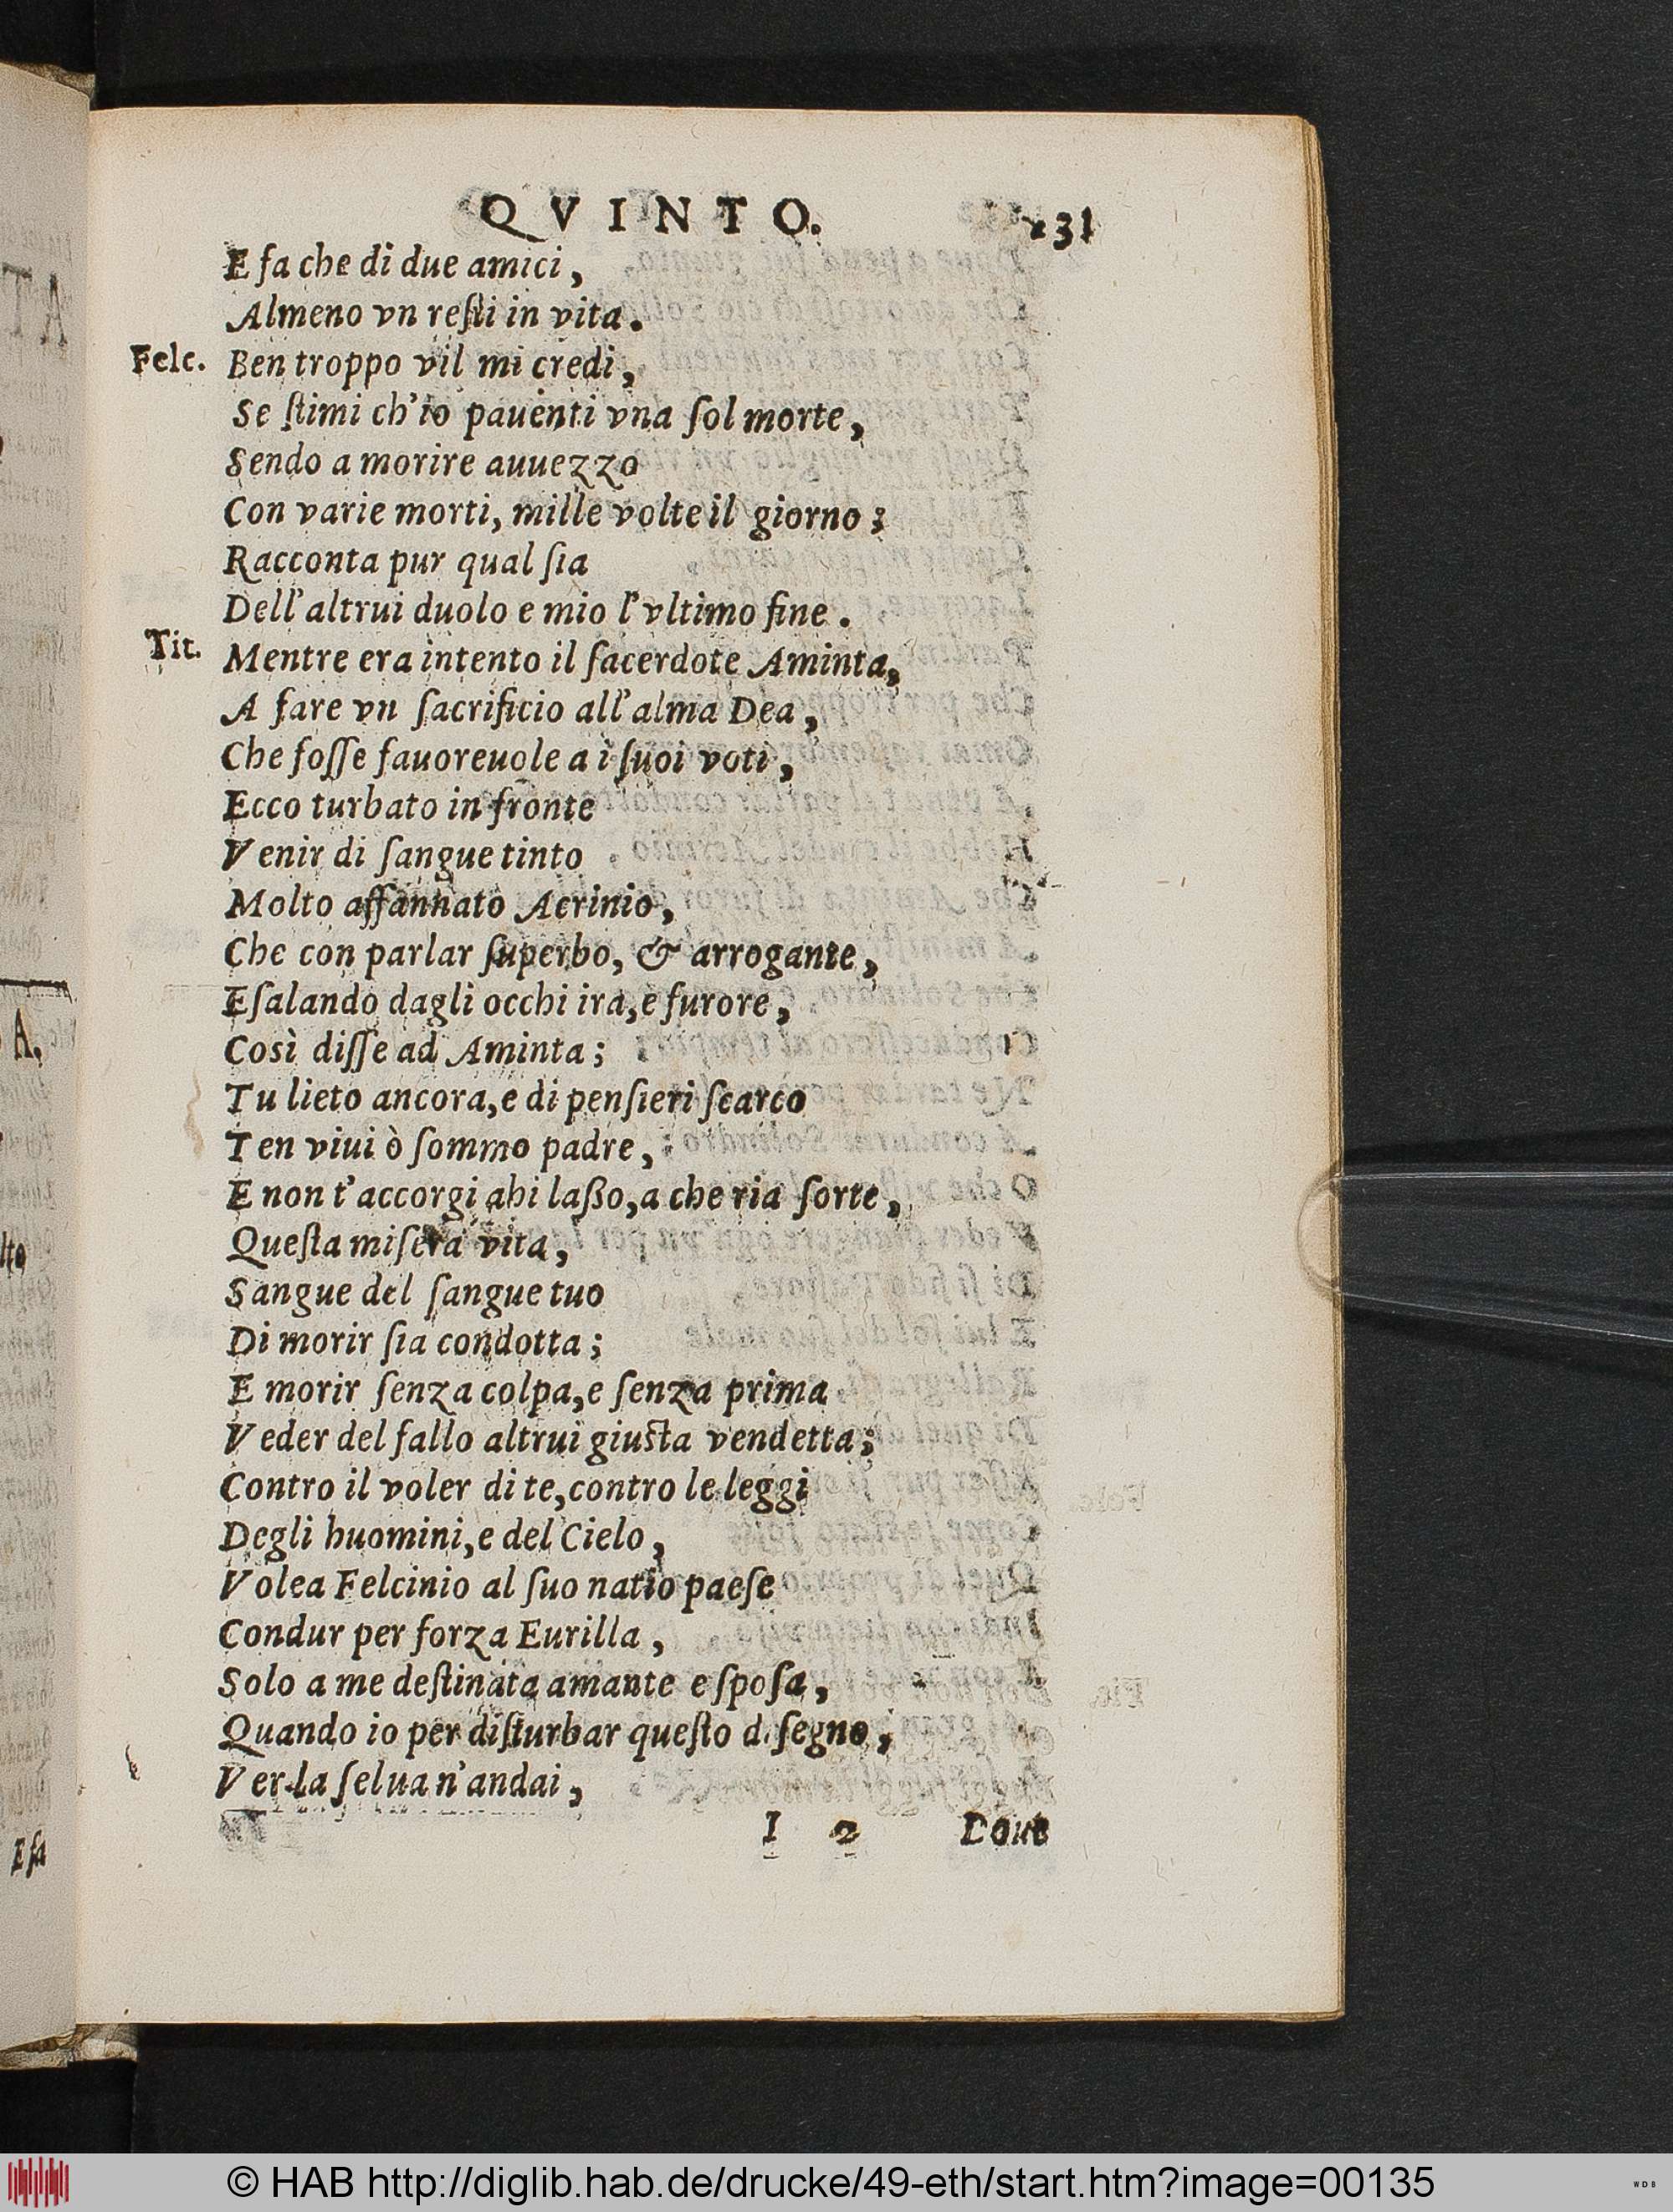 QVINTO. 131
E fa che di due amici,
Almeno vn reſti in vita.
Felc. Ben troppo vil mi credi,
Se ſtimi ch'io pauenti vna ſol morte,
Sendo a morire auuezzo
Con varie morti, mille volte il giorno;
Racconta pur qual ſia
Dell'altrui duolo e mio l'vltimo fine.
Tit. Mentre era intento il ſacerdote Aminta,
A fare vn ſacrificio all'alma Dea,
Che foſſe fauoreuole a i ſuoi voti,
Ecco turbato in fronte
Venir di ſangue tinto
Molto affannato Acrinio,
Che con parlar ſuperbo, & arrogante,
Eſalando dagli occhi ira, e furore,
Così diſſe ad Aminta;
Tu lieto ancora, e di penſieri ſcarco
Ten viui ò ſommo padre,
E non t'accorgi ahi laßo, a che ria ſorte,
Queſta miſera vita,
Sangue del ſangue tuo
Di morir ſia condotta;
E morir ſenza colpa, e ſenza prima
Veder del fallo altrui giuſta vendetta;
Contro il voler di te, contro le leggi
Degli huomini, e del Cielo,
Volea Felcinio al ſuo natio paeſe
Condur per forza Eurilla,
Solo a me deſtinata amante e ſpoſa,
Quando io per diſturbar queſto diſegno,
Ver la ſelua n'andai,
I 2 Doue
TA
A,
lto
E fa
© HAB http://diglib.hab.de/drucke/49-eth/start.htm?image=00135
WDB